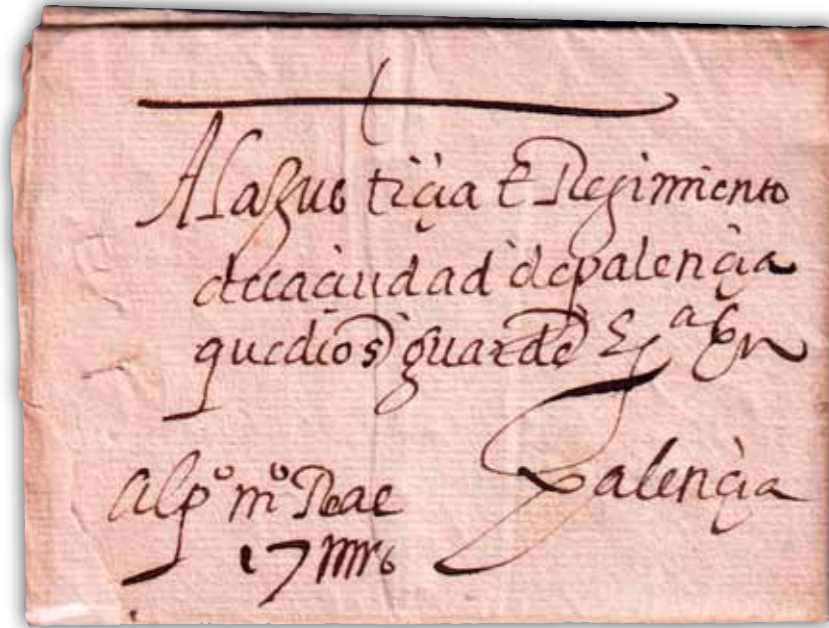 A la Justiçia E Regimiento
de la ciudad de palençia
que dios guarde En
Palençia
al p.º m.º Real
17 mrs